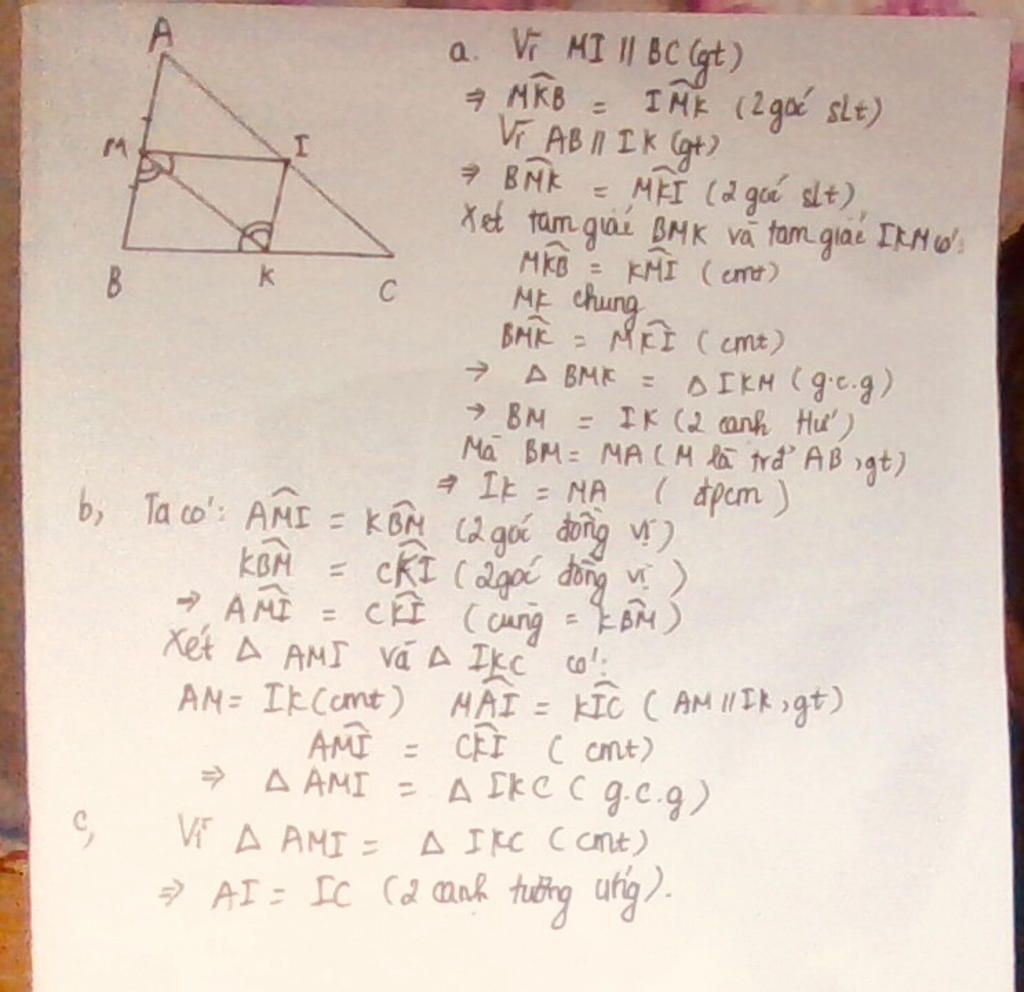 A
M
I
B
K
C
a. Vì MI // BC (gt)
⇒ M̂KB = IM̂K (2 góc slt)
Vì AB // IK (gt)
⇒ BM̂K = MK̂I (2 góc slt)
Xét tam giác BMK và tam giác IKM có:
MK̂B = KM̂I (cmt)
MK chung
BM̂K = MK̂I (cmt)
→ Δ BMK = Δ IKM (g.c.g)
→ BM = IK (2 cạnh tư)
Mà BM = MA (M là trđ AB, gt)
⇒ IK = MA (đpcm)
b, Ta có: AM̂I = KB̂M (2 góc đồng vị)
KB̂M = CK̂I (2 góc đồng vị)
→ AM̂I = CK̂I (cùng = KB̂M)
Xét Δ AMI và Δ IKC có:
AM = IK (cmt) MÂI = KÎC (AM // IK, gt)
AM̂I = CK̂I (cmt)
⇒ Δ AMI = Δ IKC (g.c.g)
c, Vì Δ AMI = Δ IKC (cmt)
⇒ AI = IC (2 cạnh tương ứng).